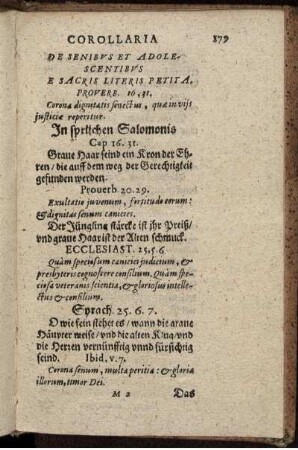 COROLLARIA 179
DE SENIBVS ET ADOLE-
SCENTIBVS
E SACRIS LITERIS PETITA.
PROVERB. 16,31.
Corona dignitatis senectus, quæ in vijs
justiciæ reperitur.
In sprüchen Salomonis
Cap 16. 31.
Graue Haar seind ein Kron der Eh-
ren / die auff dem weg der Gerechtigkeit
gefunden werden.
Prouerb 20.29.
Exultatio juvenum, fortitudo eorum:
& dignitas senum canicies.
Der Jüngling stärcke ist jhr Preiß/
vnd graue Haar ist der Alten schmuck.
ECCLESIAST. 25,5 6.
Quàm speciosum caniciei judicium, &
presbyteris cognoscere consilium. Quàm spe-
ciosa veteranis scientia, & gloriosus intelle-
ctus & consilium.
Sprach. 25. 6. 7.
O wie fein stehet es / wann die graue
Häupter weise / vnd die alten Klug / vnd
die Herren vernünfftig vnnd fürsichtig
seind. Ibid. v. 7.
Corona senum, multa peritia: & gloria
illorum, timor Dei.
M 2 Das